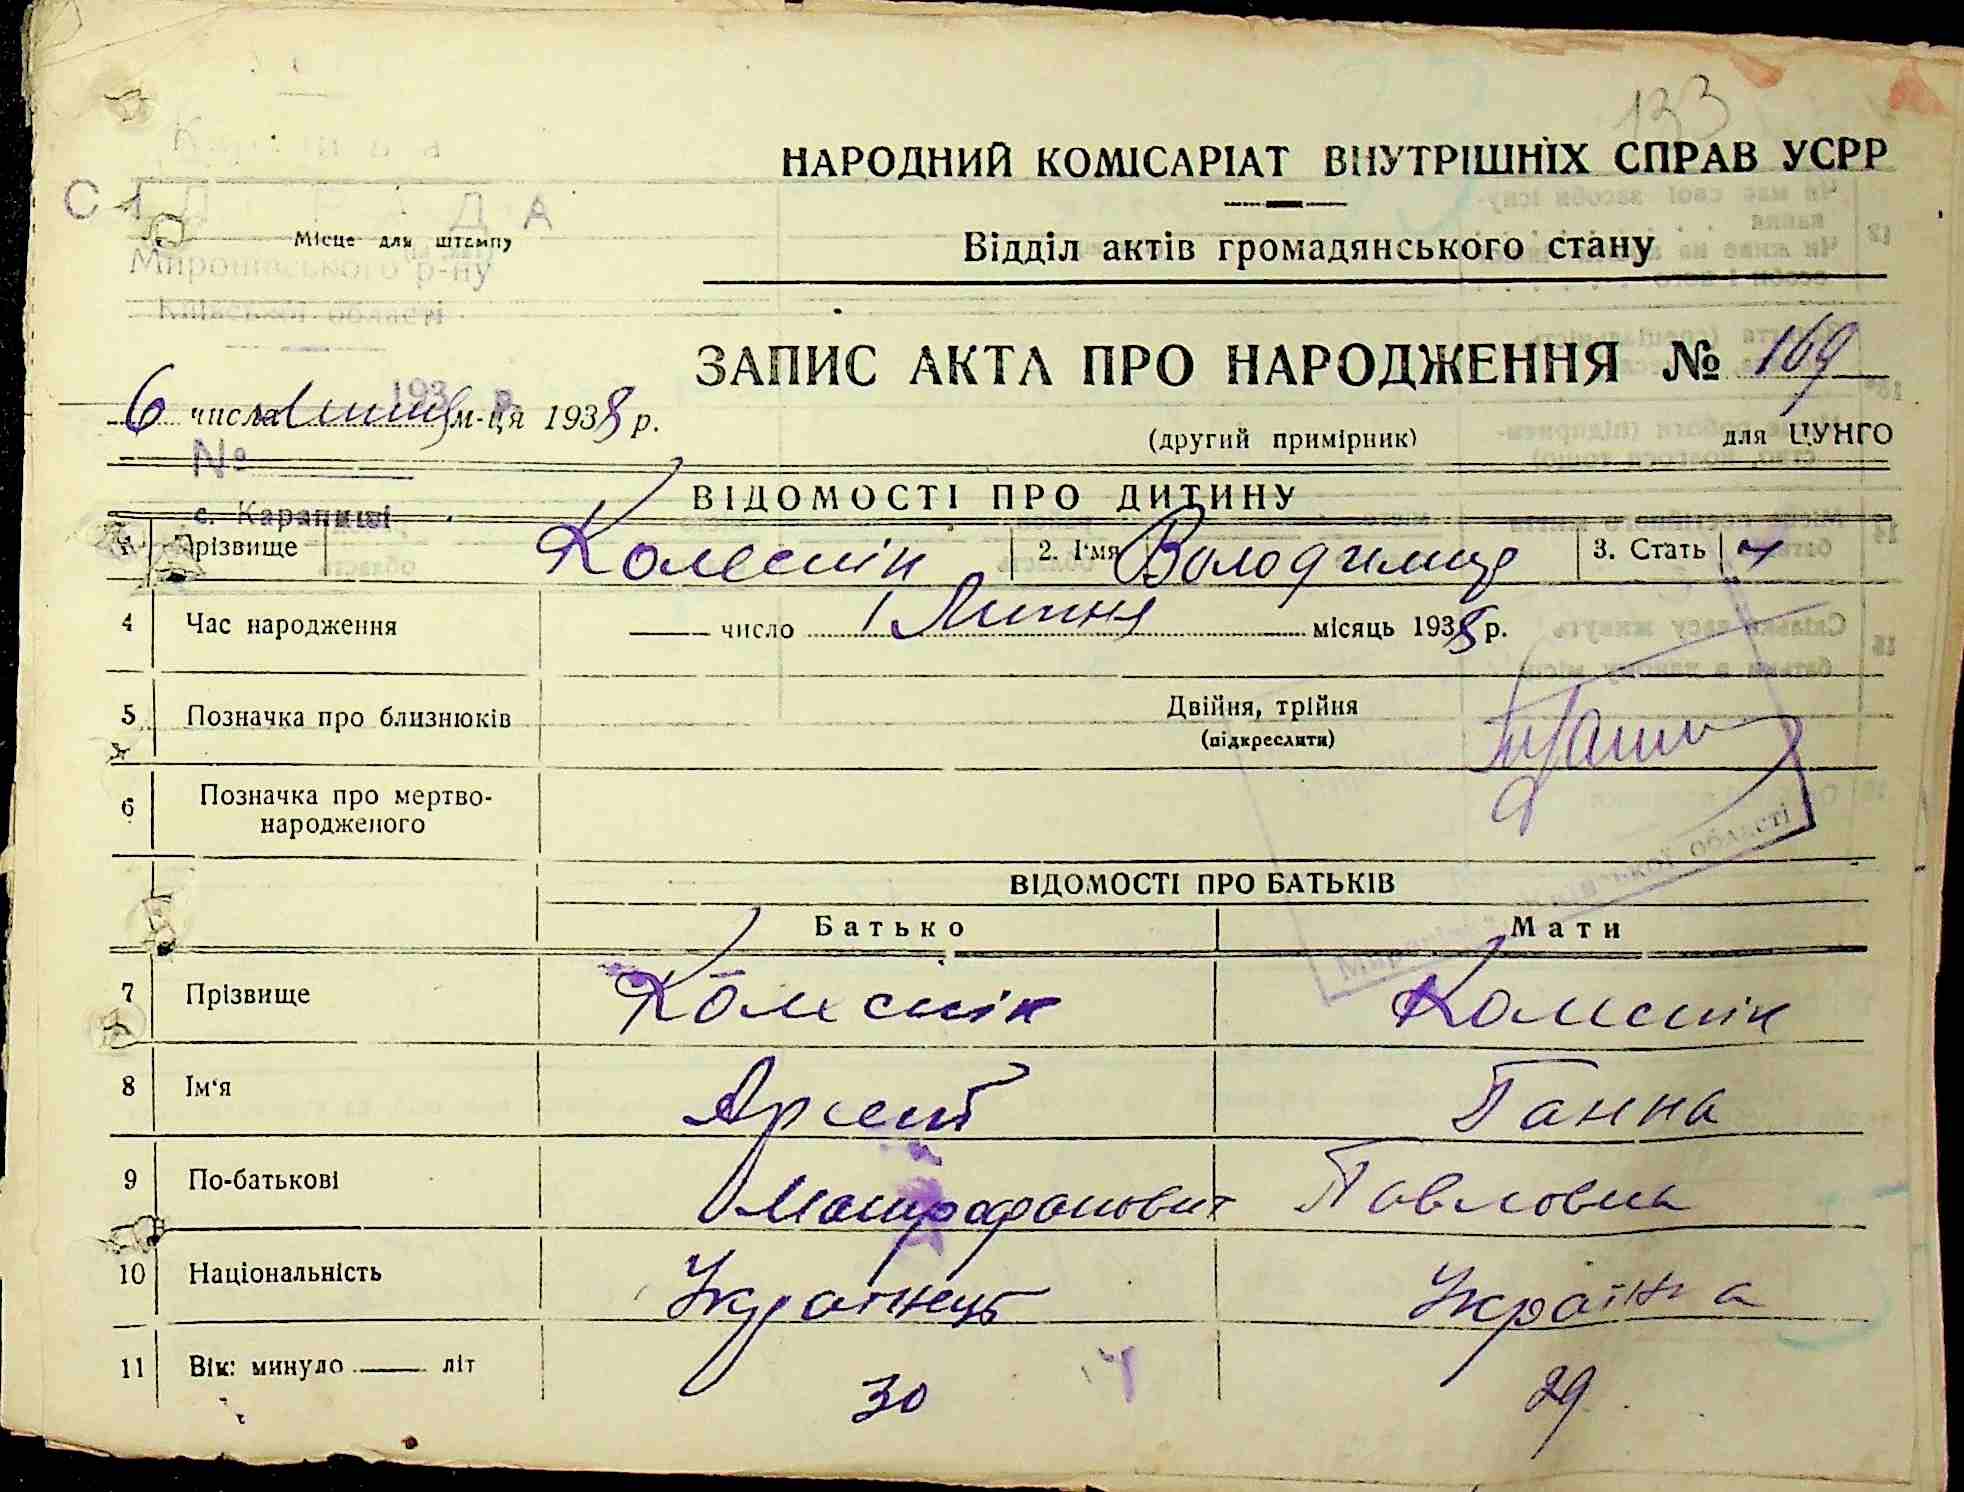 133
НАРОДНИЙ КОМІСАРІАТ ВНУТРІШНІХ СПРАВ УСРР
СІЛЬРАДА
Місце для штампу
Миронівського р-ну
Київської області
Відділ актів громадянського стану
ЗАПИС АКТА ПРО НАРОДЖЕННЯ № 169
6 числа липня м-ця 1938 р.
(другий примірник) для ЦУНГО
№
с. Карапиші
ВІДОМОСТІ ПРО ДИТИНУ
1 Прізвище Колеснік 2. Ім'я Володимир 3. Стать ч
4 Час народження число 1 Липня місяць 1938 р.
5 Позначка про близнюків Двійня, трійня
(підкреслити)
6 Позначка про мертво-
народженого
області
ВІДОМОСТІ ПРО БАТЬКІВ
Батько Мати
7 Прізвище Колеснік Колеснік
8 Ім'я Арсент Ганна
9 По-батькові Митрофанович Павловна
10 Національність Українець Українка
11 Вік: минуло літ 30 29